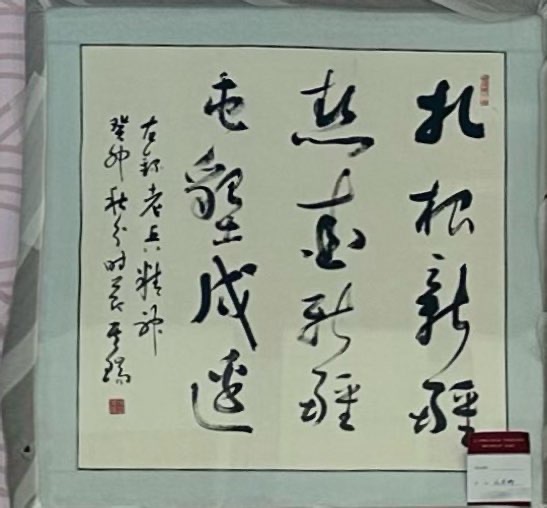 扎根新疆
热爱新疆
屯垦戍边
右录老兵精神
癸卯秋分时